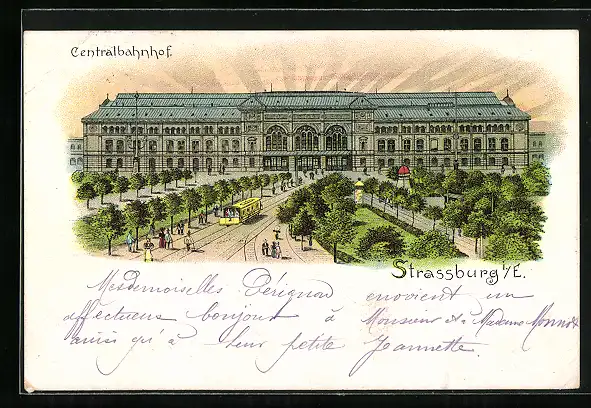 Centralbahnhof.
Strassburg i/E.
Mesdemoiselles Pérignon envoient un
affectueux bonjour à Monsieur et à Madame Monnot
ainsi qu'à leur petite Jeannette.